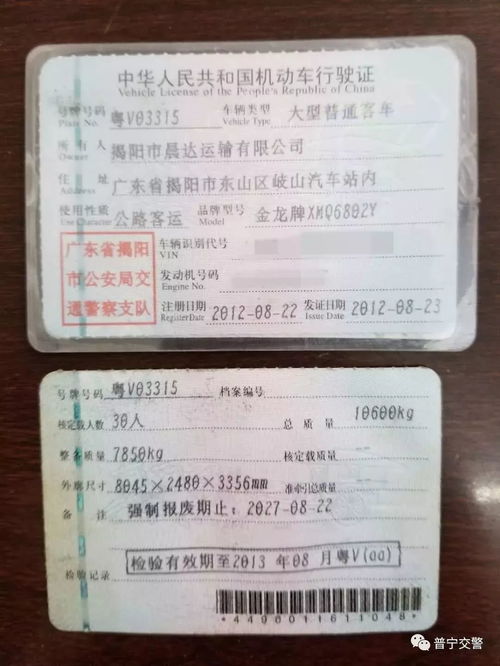 中华人民共和国机动车行驶证
Vehicle License of the People's Republic of China
号牌号码 粤V03315 车辆类型 大型普通客车
Plate No. Vehicle Type
所有人 揭阳市晨达运输有限公司
Owner
住址 广东省揭阳市东山区岐山汽车站内
Address
使用性质 公路客运 品牌型号 金龙牌XMQ6802Y
Use Character Model
广东省揭阳
市公安局交
通警察支队
车辆识别代号
VIN
发动机号码
Engine No.
注册日期 2012-08-22 发证日期 2012-08-23
Register Date Issue Date
号牌号码 粤V03315 档案编号
核定载人数 30人 总质量 10600kg
整备质量 7850kg 核定载质量
外廓尺寸 8045×2480×3356 准牵引总质量
备注 强制报废期止：2027-08-22
检验有效期至2013年08月粤V(00)
检验记录
*4490011611048*
普宁交警